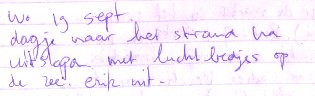 Wo 19 sept.
dagje naar het strand na
uitslapen met luchtbedjes op
de zee. erik uit.